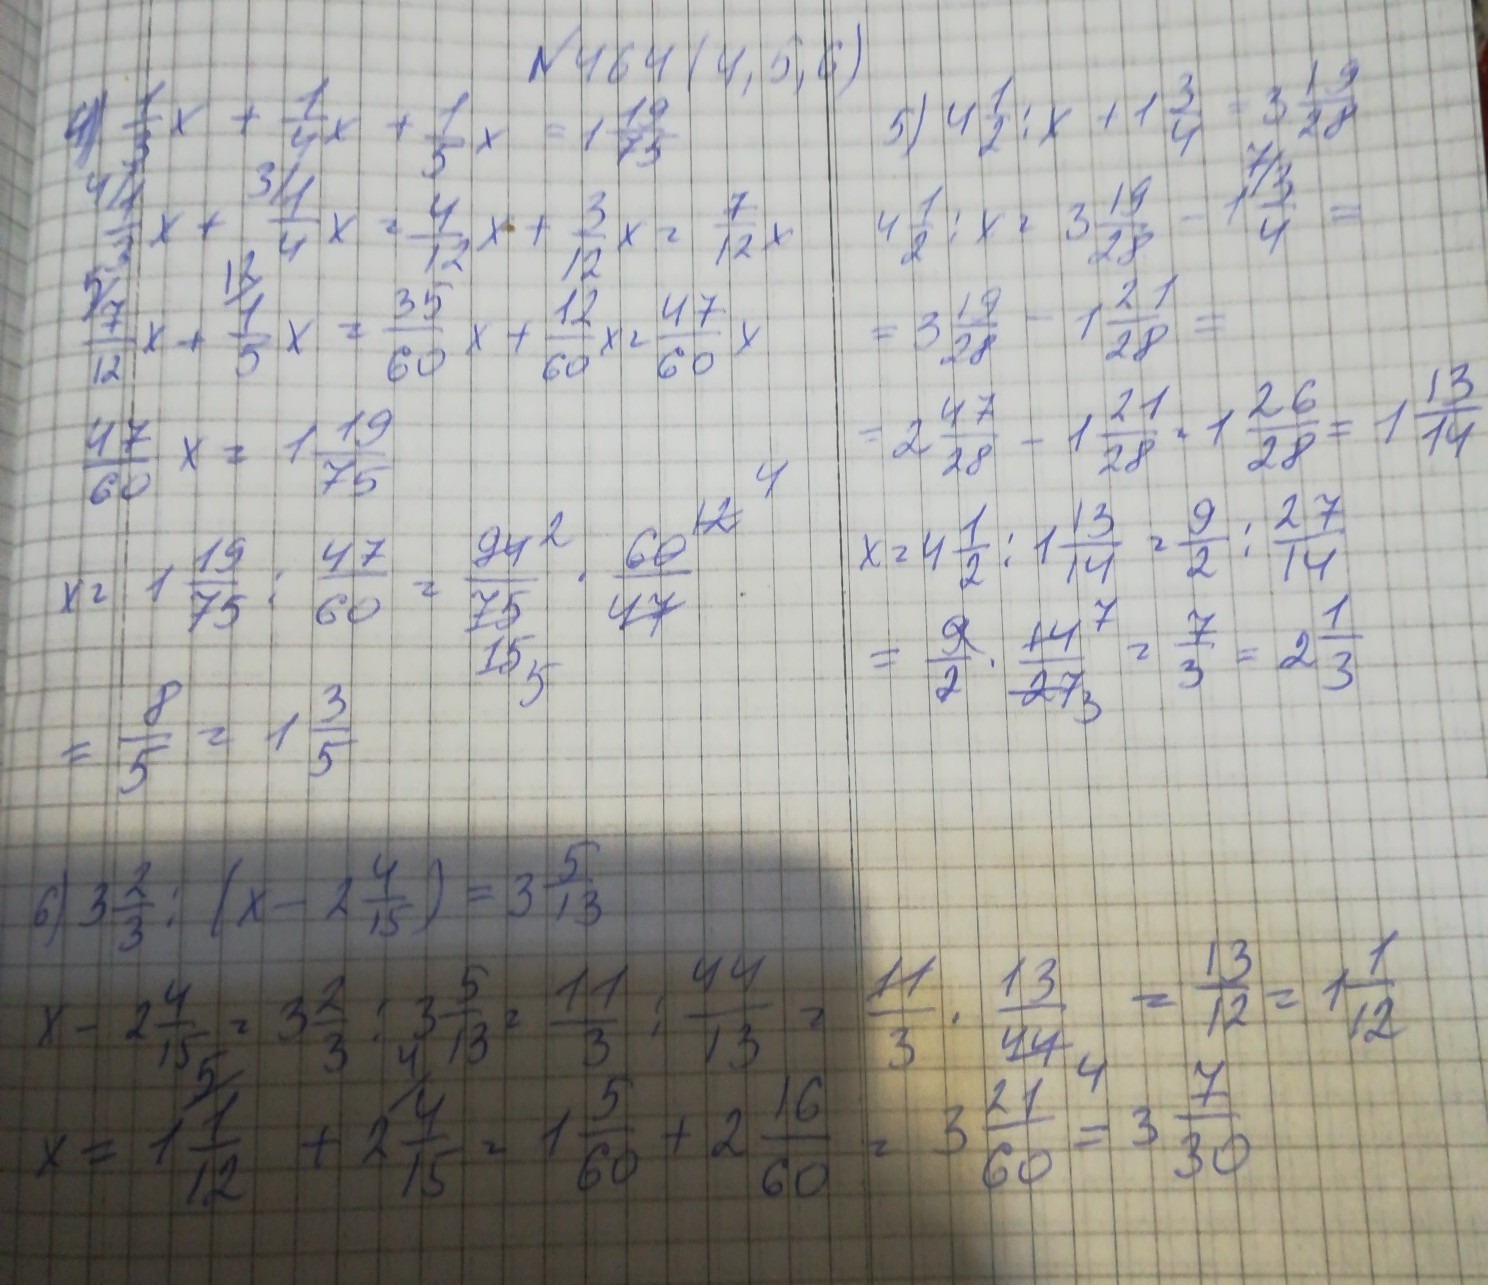 №464(4,5,6)
4) 1/3 x + 1/4 x + 1/5 x = 1 19/75
4/ 1/3 x + 3/ 1/4 x = 4/12 x + 3/12 x = 7/12 x
5/ 7/12 x + 12/ 1/5 x = 35/60 x + 12/60 x = 47/60 x
47/60 x = 1 19/75
x = 1 19/75 : 47/60 = 94/75 · 60/47
2 12 4
15 5
= 8/5 = 1 3/5
5) 4 1/2 : x + 1 3/4 = 3 19/28
4 1/2 : x = 3 19/28 - 1 7/ 3/4 =
= 3 19/28 - 1 21/28 =
= 2 47/28 - 1 21/28 = 1 26/28 = 1 13/14
x = 4 1/2 : 1 13/14 = 9/2 : 27/14
= 9/2 · 14/27 = 7/3 = 2 1/3
7
3
6) 3 2/3 : (x - 2 4/15) = 3 5/13
x - 2 4/15 = 3 2/3 : 3 5/13 = 11/3 : 44/13 = 11/3 · 13/44 = 13/12 = 1 1/12
4
x = 1 5/ 1/12 + 2 4/ 4/15 = 1 5/60 + 2 16/60 = 3 21/60 = 3 7/30